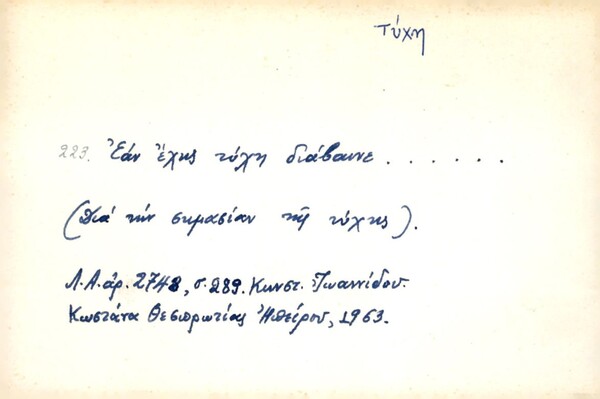 τύχη
223. Ἐάν ἔχης τύχη διάβαινε . . . . . .
(Διά τήν σημασίαν τῆς τύχης).
Λ.Α.ἀρ. 2748, σ. 289. Κωνστ. Ἰωαννίδου.
Κωστάνα Θεσπρωτίας Ἠπείρου, 1963.